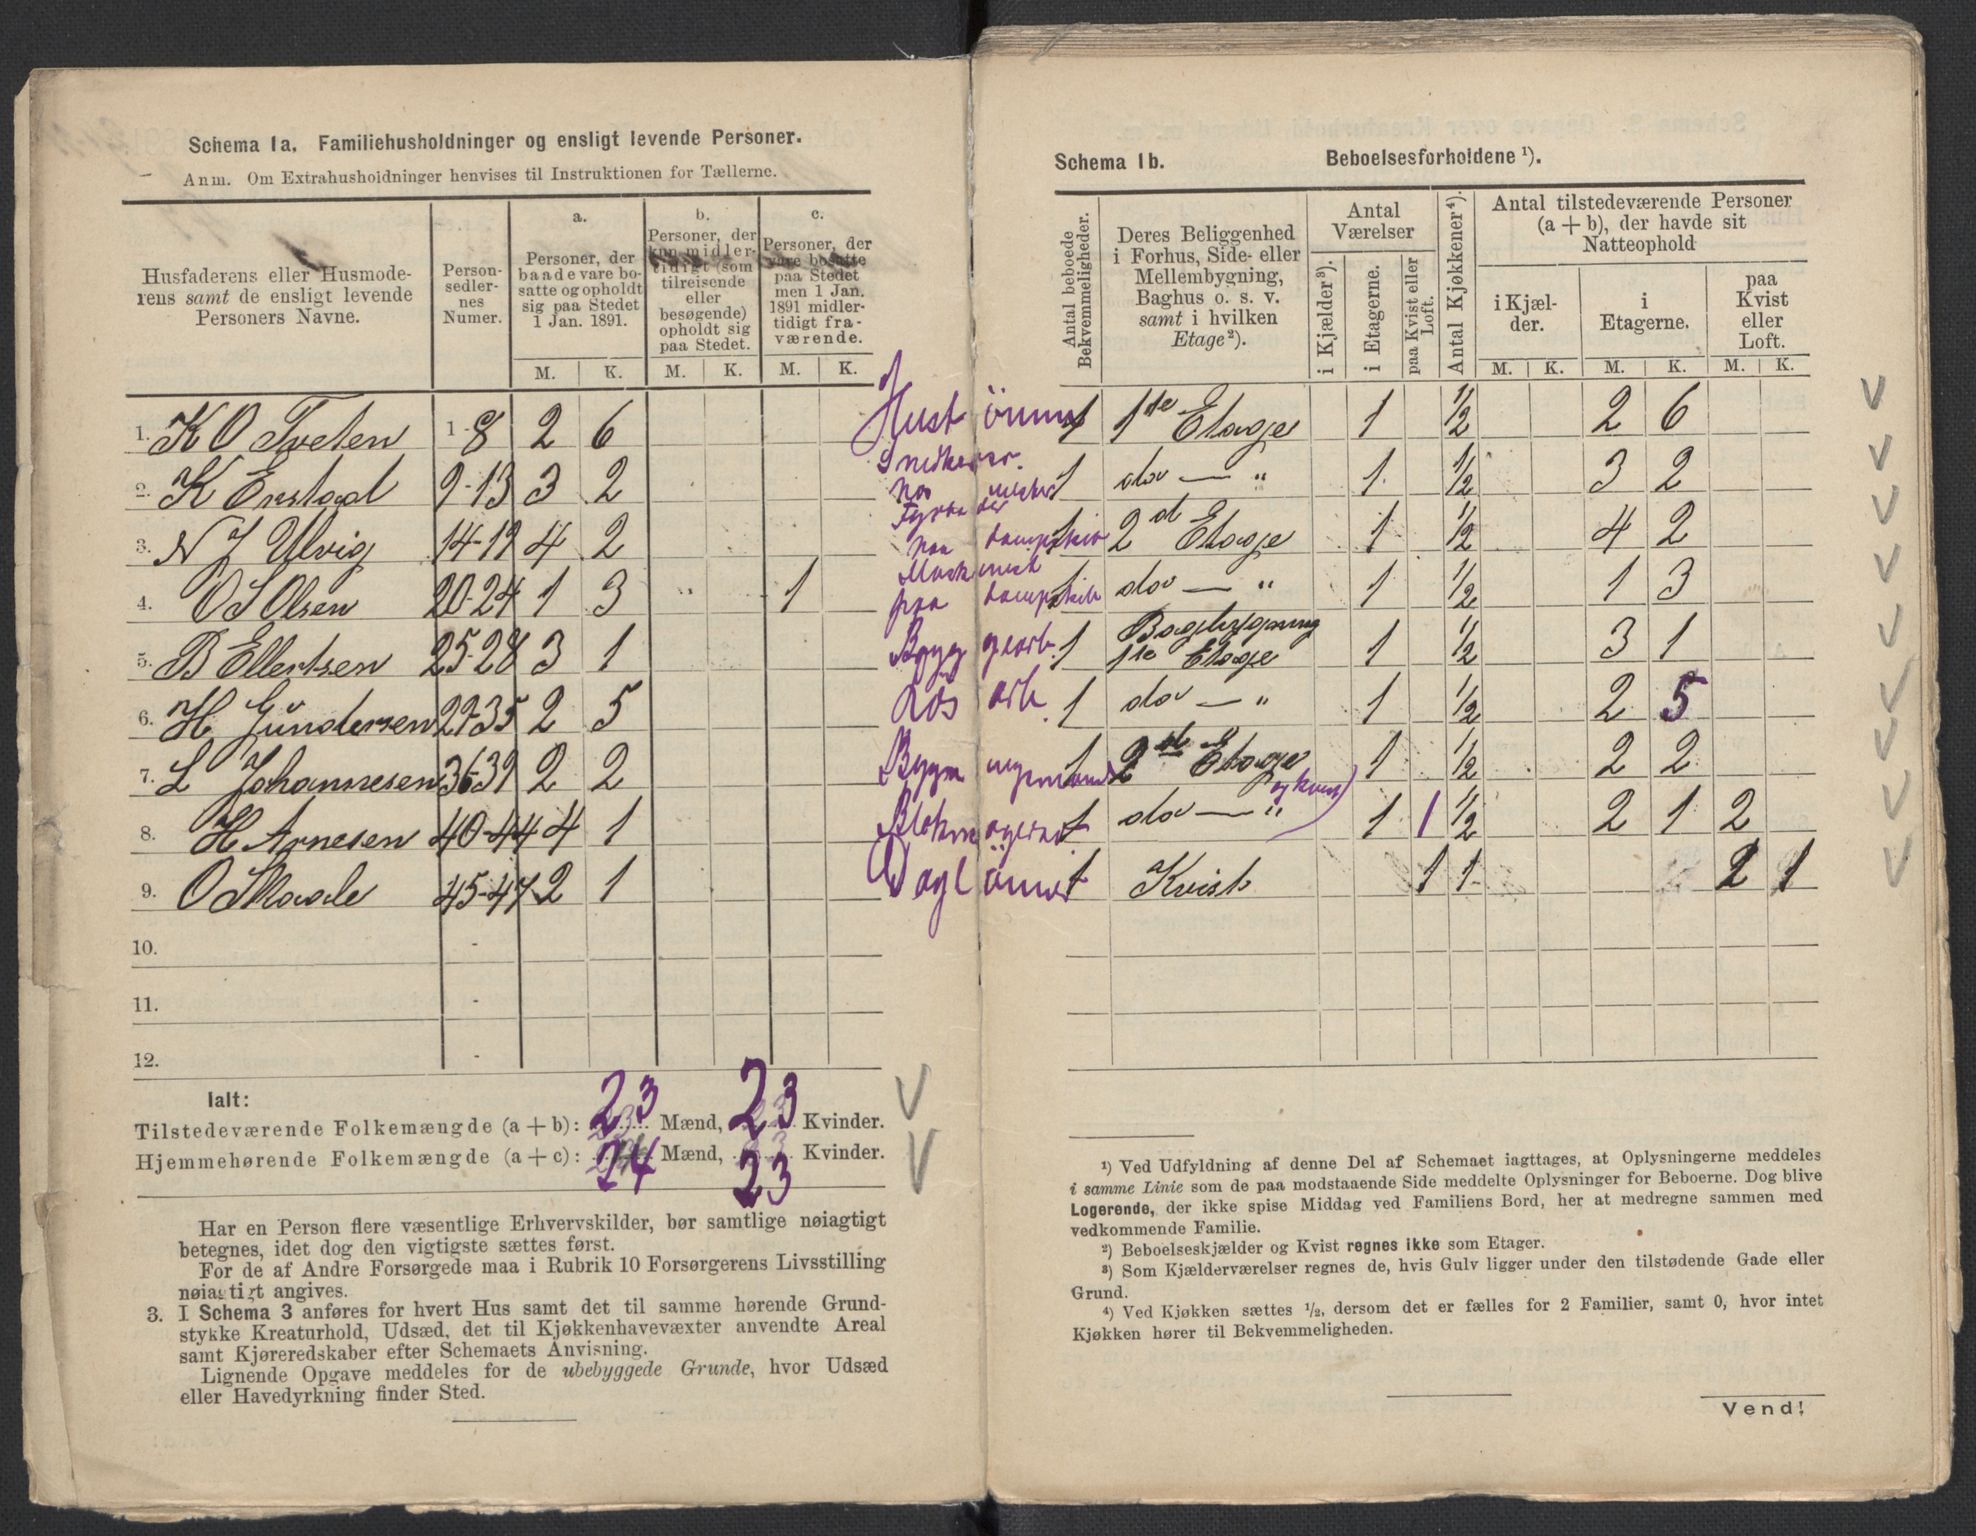 Schema 1a. Familiehusholdninger og ensligt levende Personer.
Anm. Om Extrahusholdninger henvises til Instruktionen for Tællerne.
Husfaderens eller Husmode-
rens samt de ensligt levende
Personers Navne.
Person-
sedler-
nes
Numer.
a.
Personer, der
baade vare bo-
satte og opholdt
sig paa Stedet
1 Jan. 1891.
b.
Personer, der
kun midler-
tidigt (som
tilreisende
eller
besøgende)
opholdt sig
paa Stedet.
c.
Personer, der
vare bosatte
paa Stedet
men 1 Jan.
1891 midler-
tidigt fra-
værende.
M. K. M. K. M. K.
1. K O Tveten 1-8 2 6
2. K Enstad 9-13 3 2
3. N J Ulvig 14-19 4 2
4. O S Olsen 20-24 1 3 " 1
5. B Ellertsen 25-28 3 1
6. H. Gundersen 29-35 2 5
7. L Johannesen 36-39 2 2
8. H Arnesen 40-44 4 1
9. O Skaale 45-47 2 1
10. -
11. -
12. -
Ialt:
Tilstedeværende Folkemængde (a + b): 23 Mænd, 23 Kvinder.
Hjemmehørende Folkemængde (a + c): 24 Mænd, 23 Kvinder.
Har en Person flere væsentlige Erhvervskilder, bør samtlige nøiagtigt
betegnes, idet dog den vigtigste sættes først.
For de af Andre Forsørgede maa i Rubrik 10 Forsørgerens Livsstilling
nøiagtigt angives.
3. I Schema 3 anføres for hvert Hus samt det til samme hørende Grund-
stykke Kreaturhold, Udsæd, det til Kjøkkenhavevæxter anvendte Areal
samt Kjøreredskaber efter Schemaets Anvisning.
Lignende Opgave meddeles for de ubebyggede Grunde, hvor Udsæd
eller Havedyrkning finder Sted.
Schema 1b. Beboelsesforholdene ¹).
Antal beboede
Bekvemmeligheder.
Deres Beliggenhed
i Forhus, Side- eller
Mellembygning,
Baghus o. s. v.
samt i hvilken
Etage²).
Antal
Værelser
i Kjælder³).
i Etagerne.
paa Kvist eller
Loft.
Antal Kjøkkener⁴).
Antal tilstedeværende Personer
(a + b), der havde sit
Natteophold
i Kjæl-
der.
i
Etagerne.
paa
Kvist
eller
Loft.
M. K. M. K. M. K.
1 1ste Etage 1 1/2 2 6
Snedker
1 do — " 1 1/2 3 2
1 2d Etage 1 1/2 4 2
Maskinist
paa Dampskib
1 do — " 1 1/2 1 3
Byggearb. 1 Bagbygning
1ste Etage 1 1/2 3 1
Løsarb. 1 do — " 1 1/2 2 5
1 2d Etage 1 1/2 2 2
og kvist)
1 do — " 1 1 1/2 2 1 2
Dagl 1 Kvist 1 1 2 1
¹) Ved Udfyldning af denne Del af Schemaet iagttages, at Oplysningerne meddeles
i samme Linie som de paa modstaaende Side meddelte Oplysninger for Beboerne. Dog blive
Logerende, der ikke spise Middag ved Familiens Bord, her at medregne sammen med
vedkommende Familie.
²) Beboelseskjælder og Kvist regnes ikke som Etager.
³) Som Kjælderværelser regnes de, hvis Gulv ligger under den tilstødende Gade eller
Grund.
⁴) Ved Kjøkken sættes ½, dersom det er fælles for 2 Familier, samt 0, hvor intet
Kjøkken hører til Bekvemmeligheden.
Vend!